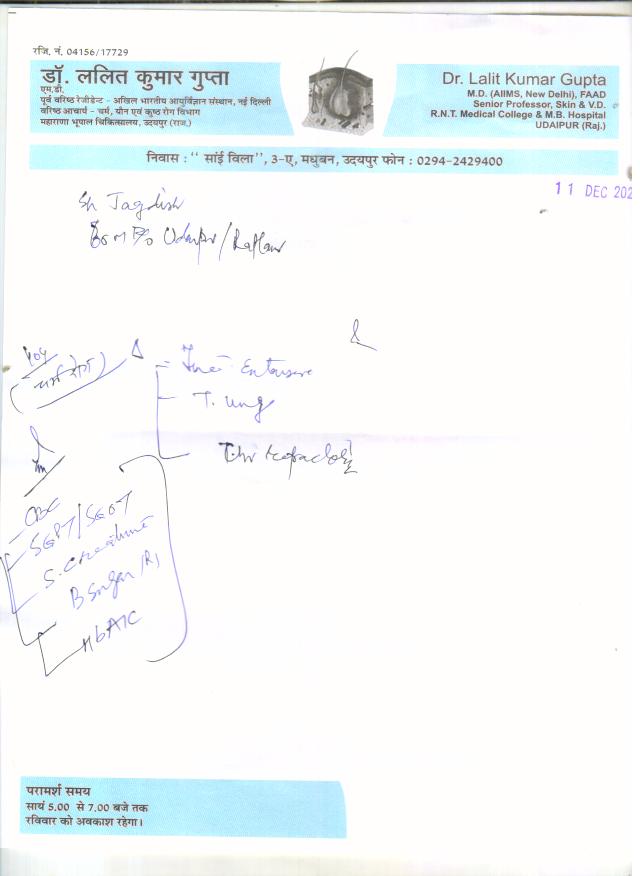 रजि. नं. 04156/17729
डॉ. ललित कुमार गुप्ता
एम.डी.
पूर्व वरिष्ठ रेजीडेन्ट - अखिल भारतीय आयुर्विज्ञान संस्थान, नई दिल्ली
वरिष्ठ आचार्य - चर्म, यौन एवं कुष्ठ रोग विभाग
महाराणा भूपाल चिकित्सालय, उदयपुर (राज.)
Dr. Lalit Kumar Gupta
M.D. (AIIMS, New Delhi), FAAD
Senior Professor, Skin & V.D.
R.N.T. Medical College & M.B. Hospital
UDAIPUR (Raj.)
निवास : " सांई विला", 3-ए, मधुबन, उदयपुर फोन : 0294-2429400
11 DEC 202
Sh Jagdish
Udaipur/
Δ
(चर्म रोग)
CBC
SGPT/SGOT
S. Creatinine
B Sugar (R)
HbA1C
परामर्श समय
सायं 5.00 से 7.00 बजे तक
रविवार को अवकाश रहेगा।